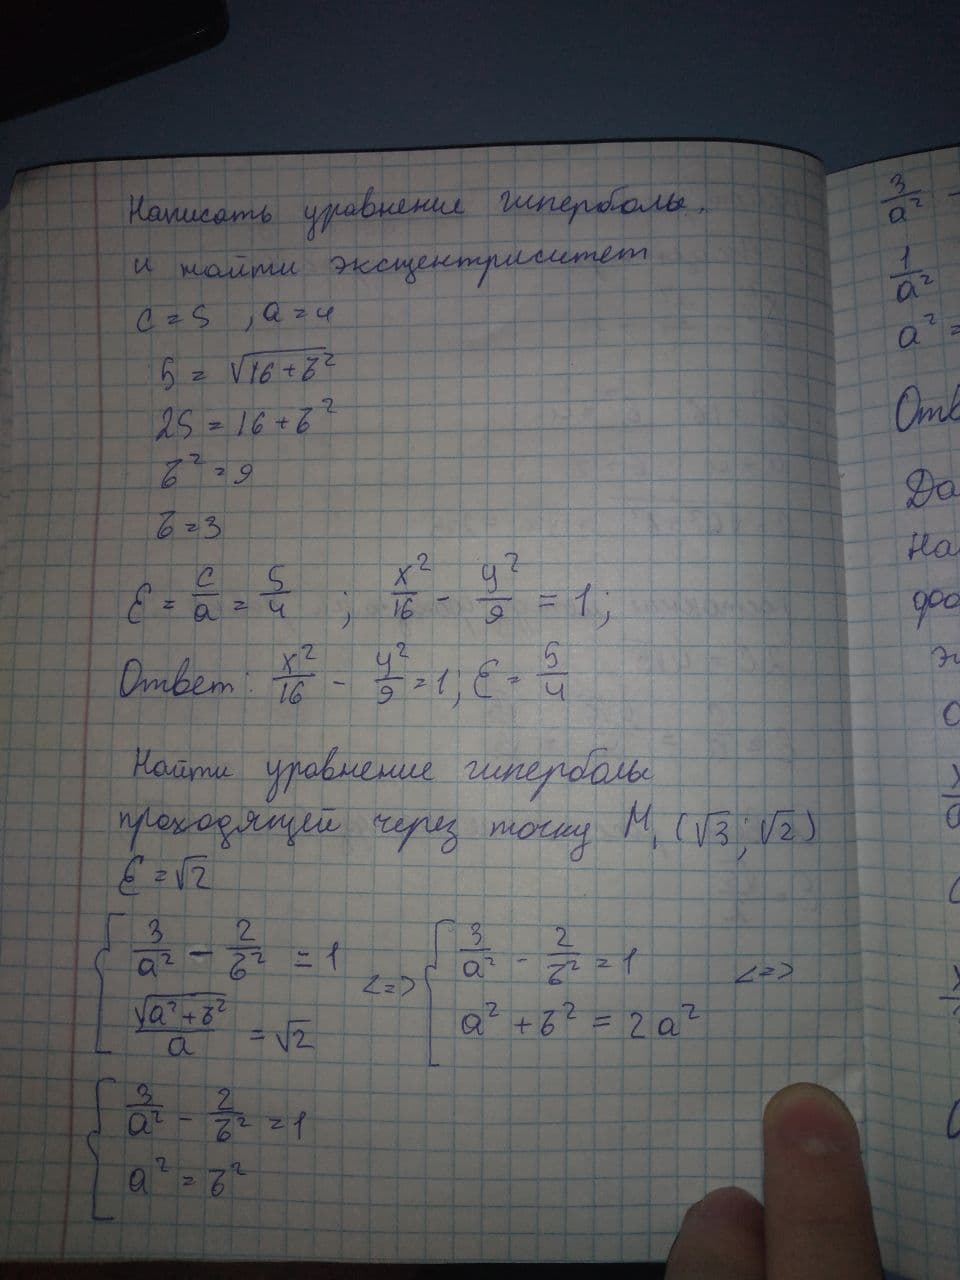 Написать уравнение гиперболы.
и найти эксцентриситет
c = 5 , a = 4
5 = √(16 + b²)
25 = 16 + b²
b² = 9
b = 3
Ɛ = c/a = 5/4 ; x²/16 - y²/9 = 1;
Ответ: x²/16 - y²/9 = 1; Ɛ = 5/4
Найти уравнение гиперболы
проходящей через точку M₁ (√3; √2)
Ɛ = √2
{ 3/a² - 2/b² = 1 <=> { 3/a² - 2/b² = 1 <=>
√(a² + b²)/a = √2 a² + b² = 2a²
{ 3/a² - 2/b² = 1
a² = b²
3/a² -
1/a²
a² =